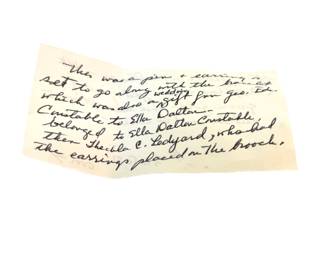 This was a pin & earring
set to go along with the bracelet
which was also a wedding gift from Geo. W.
Constable to Ella Dalton.
belonged to Ella Dalton Constable,
then Thecla C. Ledyard, who had
the earrings placed on the brooch.